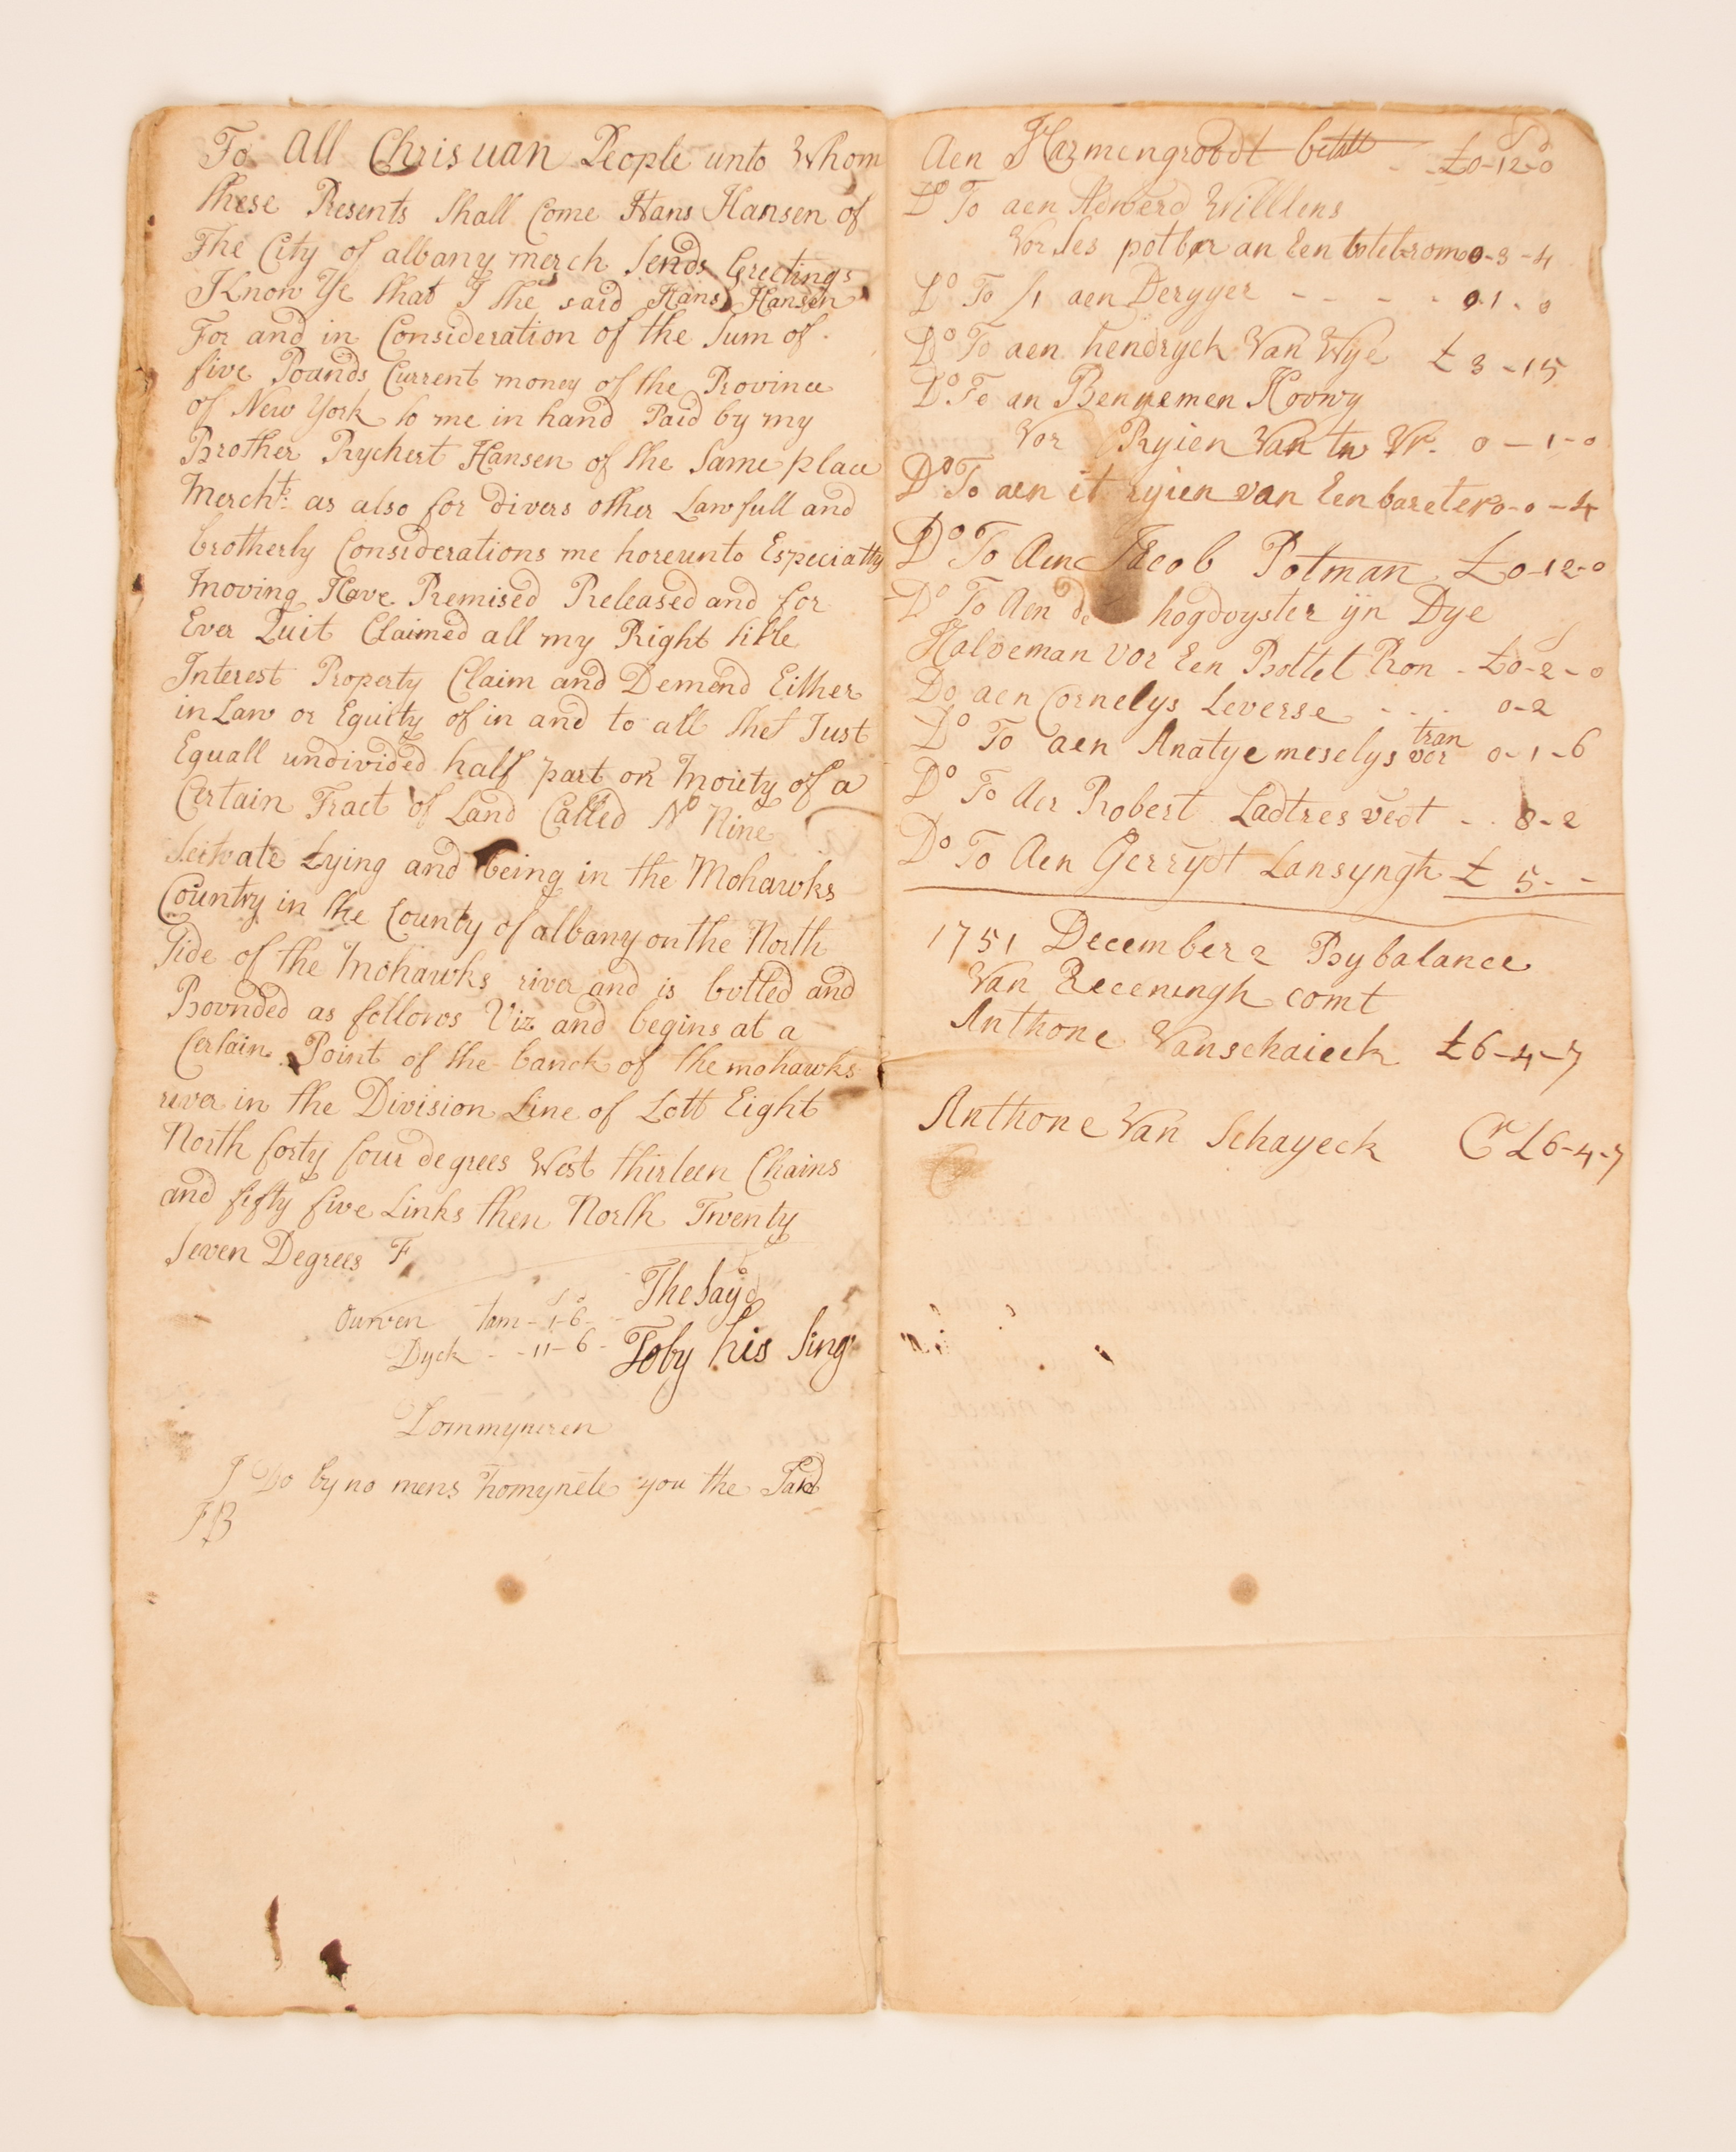 To All Christian People unto Whom
these Presents shall Come Hans Hansen of
The City of albany merch sends Greetings
Know Ye that I the said Hans Hansen
For and in Consideration of the Sum of
five Pounds Current money of the Province
of New York to me in hand Paid by my
Brother Rychert Hansen of the Same place
Mercht: as also for divers other Lawfull and
brotherly Considerations me hereunto Especiatly
moving Have Remised Released and for
Ever Quit Claimed all my Right title
Interest Property Claim and Demend Either
in Law or Equity of in and to all thet Just
Equall undivided half part or moiety of a
Certain Tract of Land Called No Nine
Seituate Lying and being in the Mohawks
Country in the County of albany on the North
Side of the Mohawks river and is butted and
Bounded as follows Viz and begins at a
Certain Point of the banck of the mohawks
river in the Division Line of Lott Eight
North forty four degrees West thirteen Chains
and fifty five Links then North Twenty
Seven Degrees
The Sayd
Tam - 1-6-
Dyck - - 11-6 - Toby his Sing
Dommyneren
I Do by no mens Tomynete you the
Aen Harmengroodt betalt - - £0-12-0
Do To aen Adwerd Willlens
Vor Ses potbar an Een 0-3-4
Do To /1 aen Deryyer - - - - 0-1-0
Do To aen hendryck Van Wye £ 3-15
Do To an Benyemen Roowy
Vor Ryien Van tw Vr. 0-1-0
Do To aen it ryien van Een bareter 0-0-4
Do To Aen Jacob Potman £0-12-0
Do To Aen de hogdoyster ijn Dye
Halveman vor Een Bottel Rom - £0-2-0
Do aen Cornelys Leverse - - - 0-2
tran
Do To aen Anatye meselys vor 0-1-6
Do To Aer Robert Ladtres vedt - - 8-2
Do To Aen Gerrydt Lansyngh £ 5 - -
1751 December 2 By balance
Van Receningh comt
Anthone Vanschaieck £6-4-7
Anthone Van Schayeck Cr £6-4-7